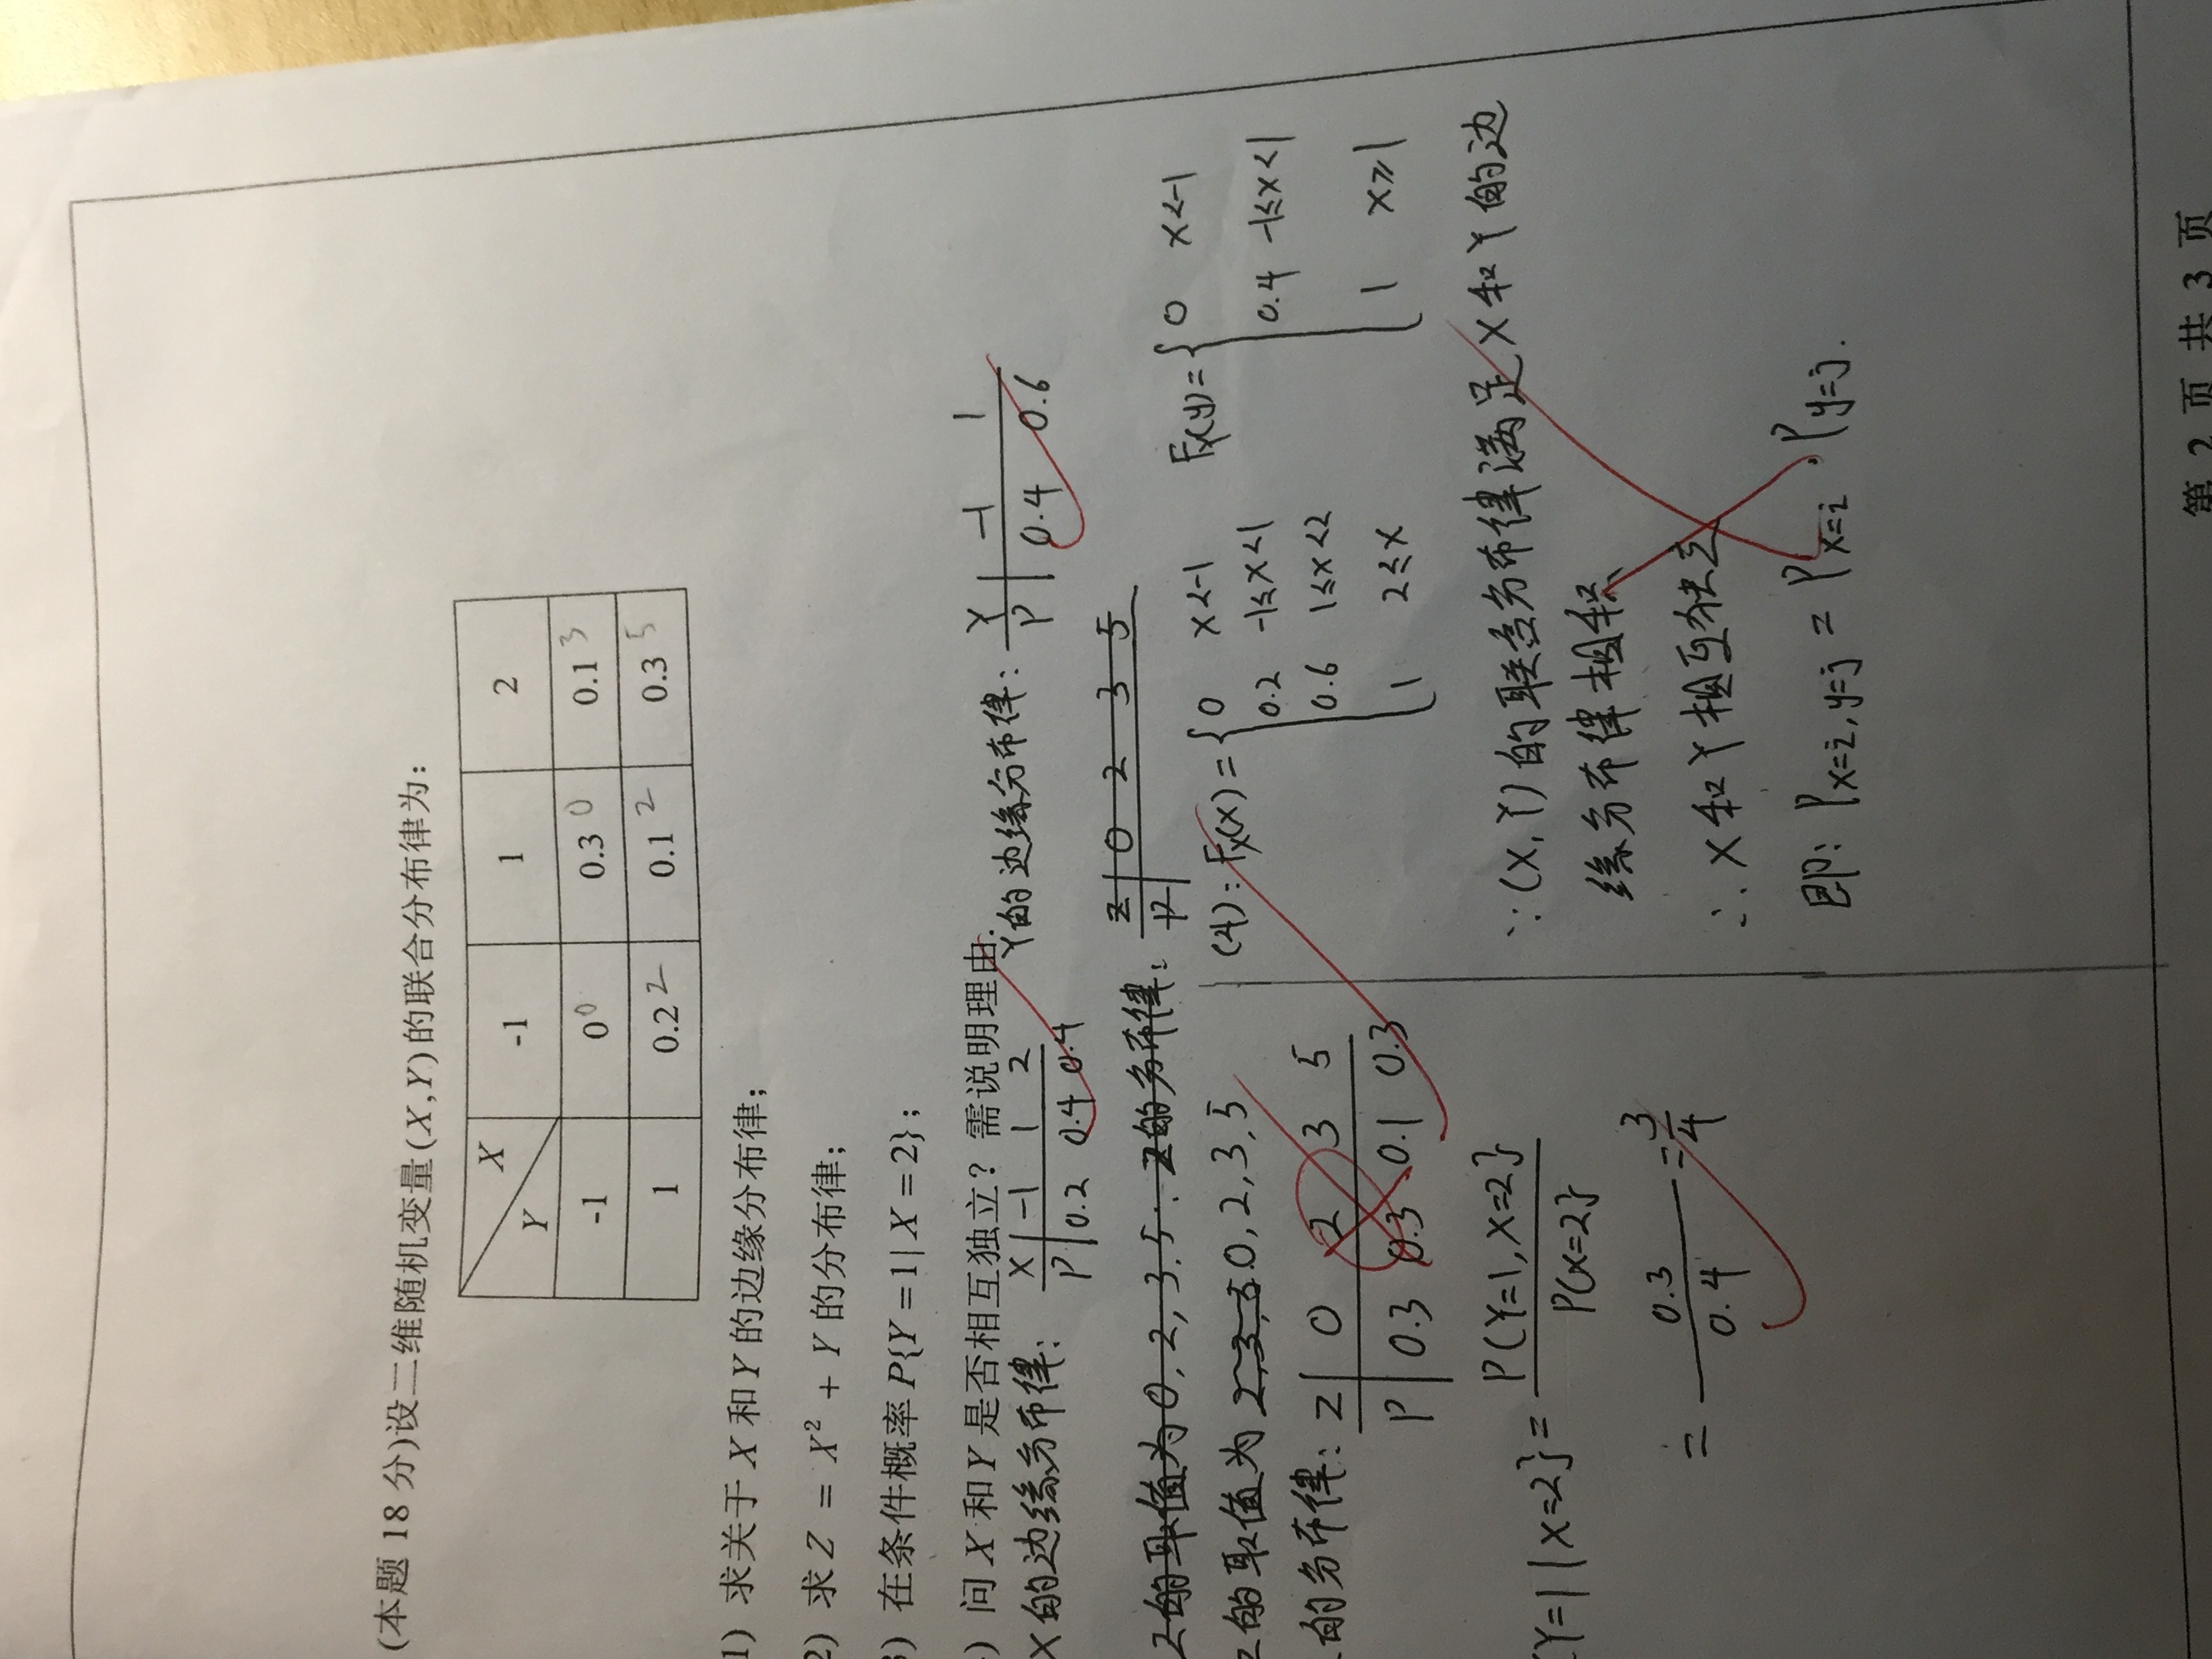 (本题 18 分)设二维随机变量(X,Y)的联合分布律为：
X -1 1 2
Y
-1 0 0 0.3 0 0.1 3
1 0.2 2 0.1 2 0.3 5
1) 求关于 X 和 Y 的边缘分布律；
2) 求 Z = X² + Y 的分布律；
3) 在条件概率 P{Y=1|X=2}；
) 问 X 和 Y 是否相互独立？需说明理由.
X的边缘分布律: X -1 1 2
P 0.2 0.4 0.4
Y的边缘分布律: Y -1 1
P 0.4 0.6
Z的取值为0,2,3,5; Z的分布律: Z 0 2 3 5
P
Z的取值为 2,3,5 0,2,3,5
的分布律: Z 0 2 3 5
P 0.3 0.3 0.1 0.3
{Y=1|X=2} = P{Y=1,X=2} / P{X=2}
= 0.3 / 0.4 = 3/4
(4): Fx(x) = { 0 x<-1
0.2 -1≤x<1
0.6 1≤x<2
1 2≤x
Fy(y) = { 0 x<-1
0.4 -1≤x<1
1 x≥1
∵(X,Y)的联合分布律满足X和Y的边
缘分布律相积
∴X和Y相互独立
即: Px=i,y=j = Px=i · Py=j.
第 2 页 共 3 页